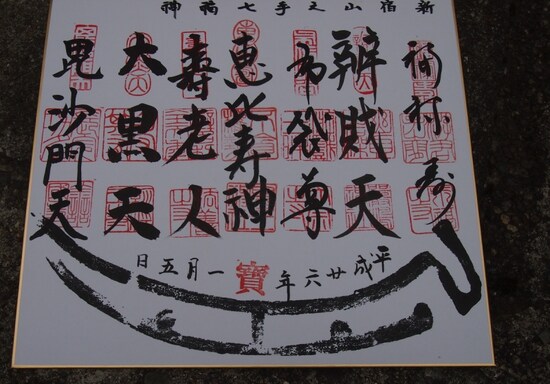 新宿山之手七福神
福禄寿
辨財天
布袋尊
恵比寿神
壽老人
大黒天
毘沙門天
平成廿六年一月五日
寶